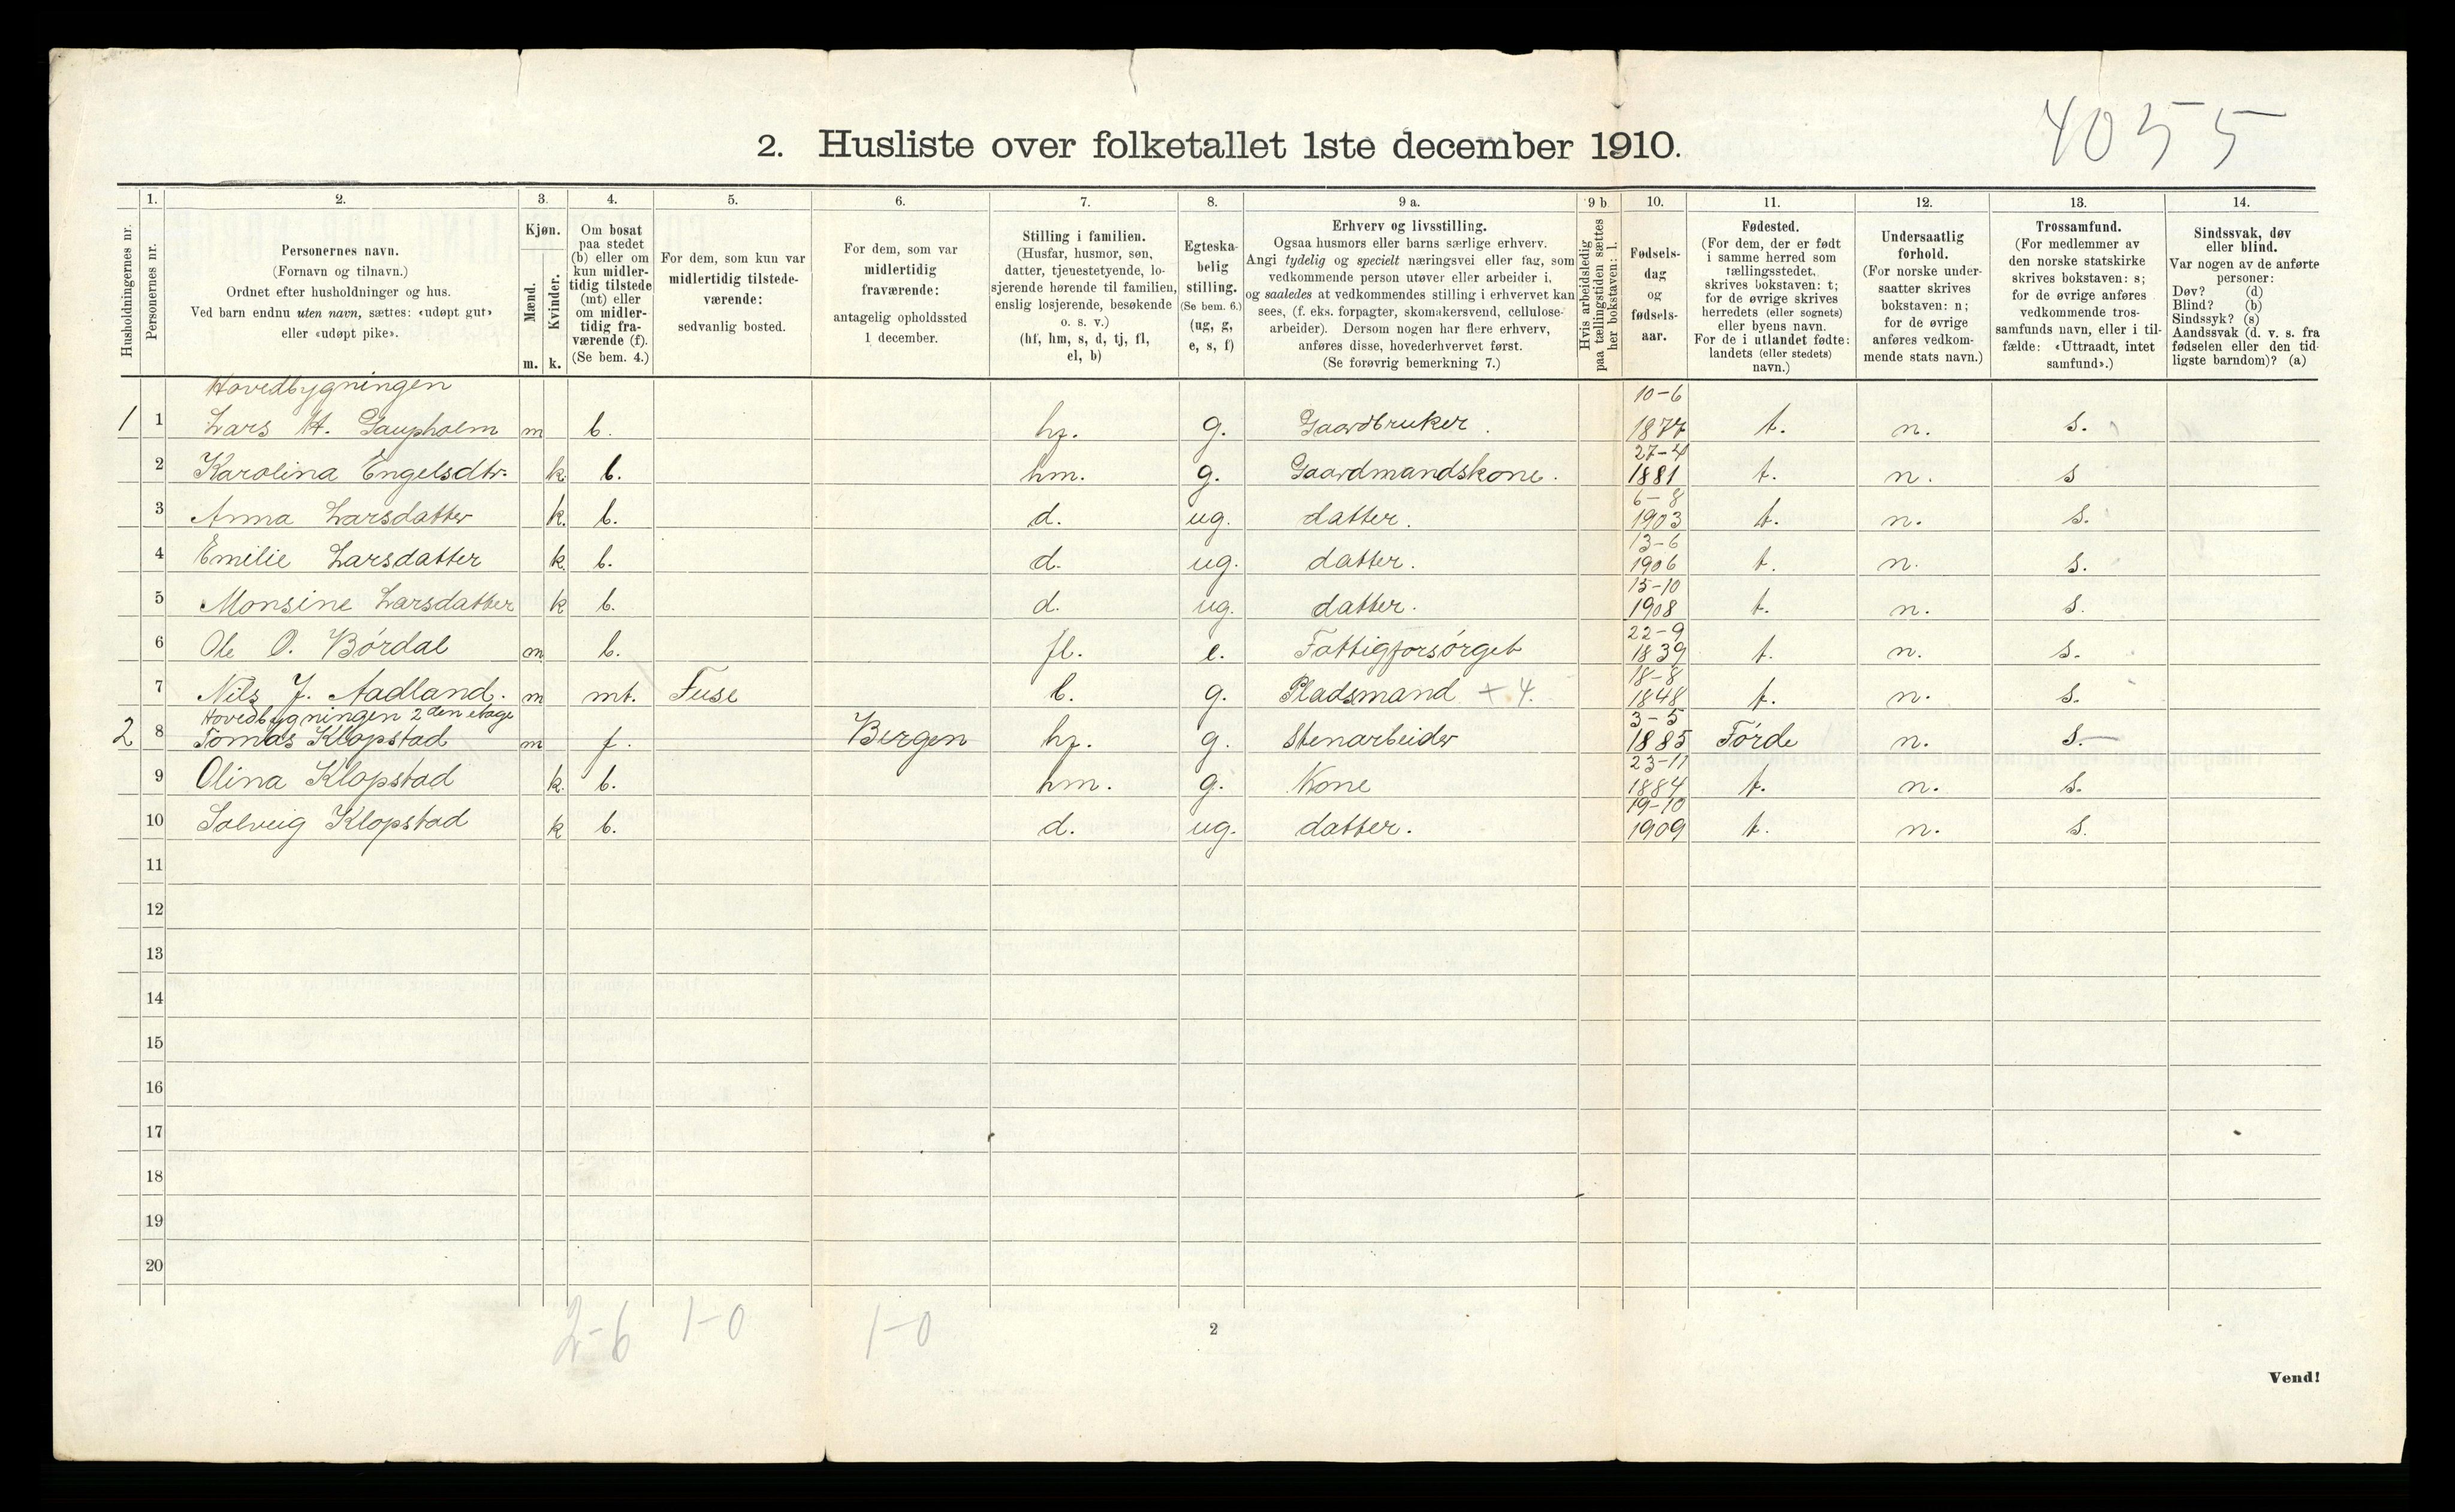 4055
2. Husliste over folketallet 1ste december 1910.
1. 2. 3. 4. 5. 6. 7. 8. 9 a. 9 b. 10. 11. 12. 13. 14.
Husholdningernes nr.
Personernes nr.
Personernes navn.
(Fornavn og tilnavn.)
Ordnet efter husholdninger og hus.
Ved barn endnu uten navn, sættes: «udøpt gut»
eller «udøpt pike».
Kjøn.
Mænd.
Kvinder.
m. k.
Om bosat
paa stedet
(b) eller om
kun midler-
tidig tilstede
(mt) eller
om midler-
tidig fra-
værende (f).
(Se bem. 4.)
For dem, som kun var
midlertidig tilstede-
værende:
sedvanlig bosted.
For dem, som var
midlertidig
fraværende:
antagelig opholdssted
1 december.
Stilling i familien.
(Husfar, husmor, søn,
datter, tjenestetyende, lo-
sjerende hørende til familien,
enslig losjerende, besøkende
o. s. v.)
(hf, hm, s, d, tj, fl,
el, b)
Egteska-
belig
stilling.
(Se bem. 6.)
(ug, g,
e, s, f)
Erhverv og livsstilling.
Ogsaa husmors eller barns særlige erhverv.
Angi tydelig og specielt næringsvei eller fag, som
vedkommende person utøver eller arbeider i,
og saaledes at vedkommendes stilling i erhvervet kan
sees, (f. eks. forpagter, skomakersvend, cellulose-
arbeider). Dersom nogen har flere erhverv,
anføres disse, hovederhvervet først.
(Se forøvrig bemerkning 7.)
Hvis arbeidsledig
paa tællingstiden sættes
her bokstaven: l.
Fødsels-
dag
og
fødsels-
aar.
Fødested.
(For dem, der er født
i samme herred som
tællingsstedet,
skrives bokstaven: t;
for de øvrige skrives
herredets (eller sognets)
eller byens navn.
For de i utlandet fødte:
landets (eller stedets)
navn.)
Undersaatlig
forhold.
(For norske under-
saatter skrives
bokstaven: n;
for de øvrige
anføres vedkom-
mende stats navn.)
Trossamfund.
(For medlemmer av
den norske statskirke
skrives bokstaven: s;
for de øvrige anføres
vedkommende tros-
samfunds navn, eller i til-
fælde: «Uttraadt, intet
samfund».)
Sindssvak, døv
eller blind.
Var nogen av de anførte
personer:
Døv? (d)
Blind? (b)
Sindssyk? (s)
Aandssvak (d. v. s. fra
fødselen eller den tid-
ligste barndom)? (a)
Hovedbygningen
1 1 Lars H. Gaupholm m b. hf. g. Gaardbruker. 10-6 1877 t. n. s.
2 Karolina Engelsdtr. k. b. hm. g. Gaardmandskone. 27-4 1881 t. n. s
3 Anna Larsdatter k. b. d. ug. datter. 6-8 1903 t. n. s.
4 Emilie Larsdatter k. b. d. ug. datter. 13-6 1906 t. n. s.
5 Monsine Larsdatter k b. d. ug. datter. 15-10 1908 t. n. s.
6 Ole O. Børdal m b. fl. e. Fattigforsørget 22-9 1839 t. n. s.
7 Nils J. Aadland. m mt. Fuse b. g. Pladsmand + 4. 18-8 1848 t. n. s.
Hovedbygningen 2den etage
2 8 Tomas Klopstad m f. Bergen hf. g. Stenarbeider 3-5 1885 Førde n. s.
9 Olina Klopstad k. b. hm. g. Kone 23-11 1884 t. n. s.
10 Solveig Klopstad k b. d. ug. datter. 19-10 1909 t. n. s.
11
12
13
14
15
16
17
18
19
20
2-6 1-0 1-0
2
Vend!